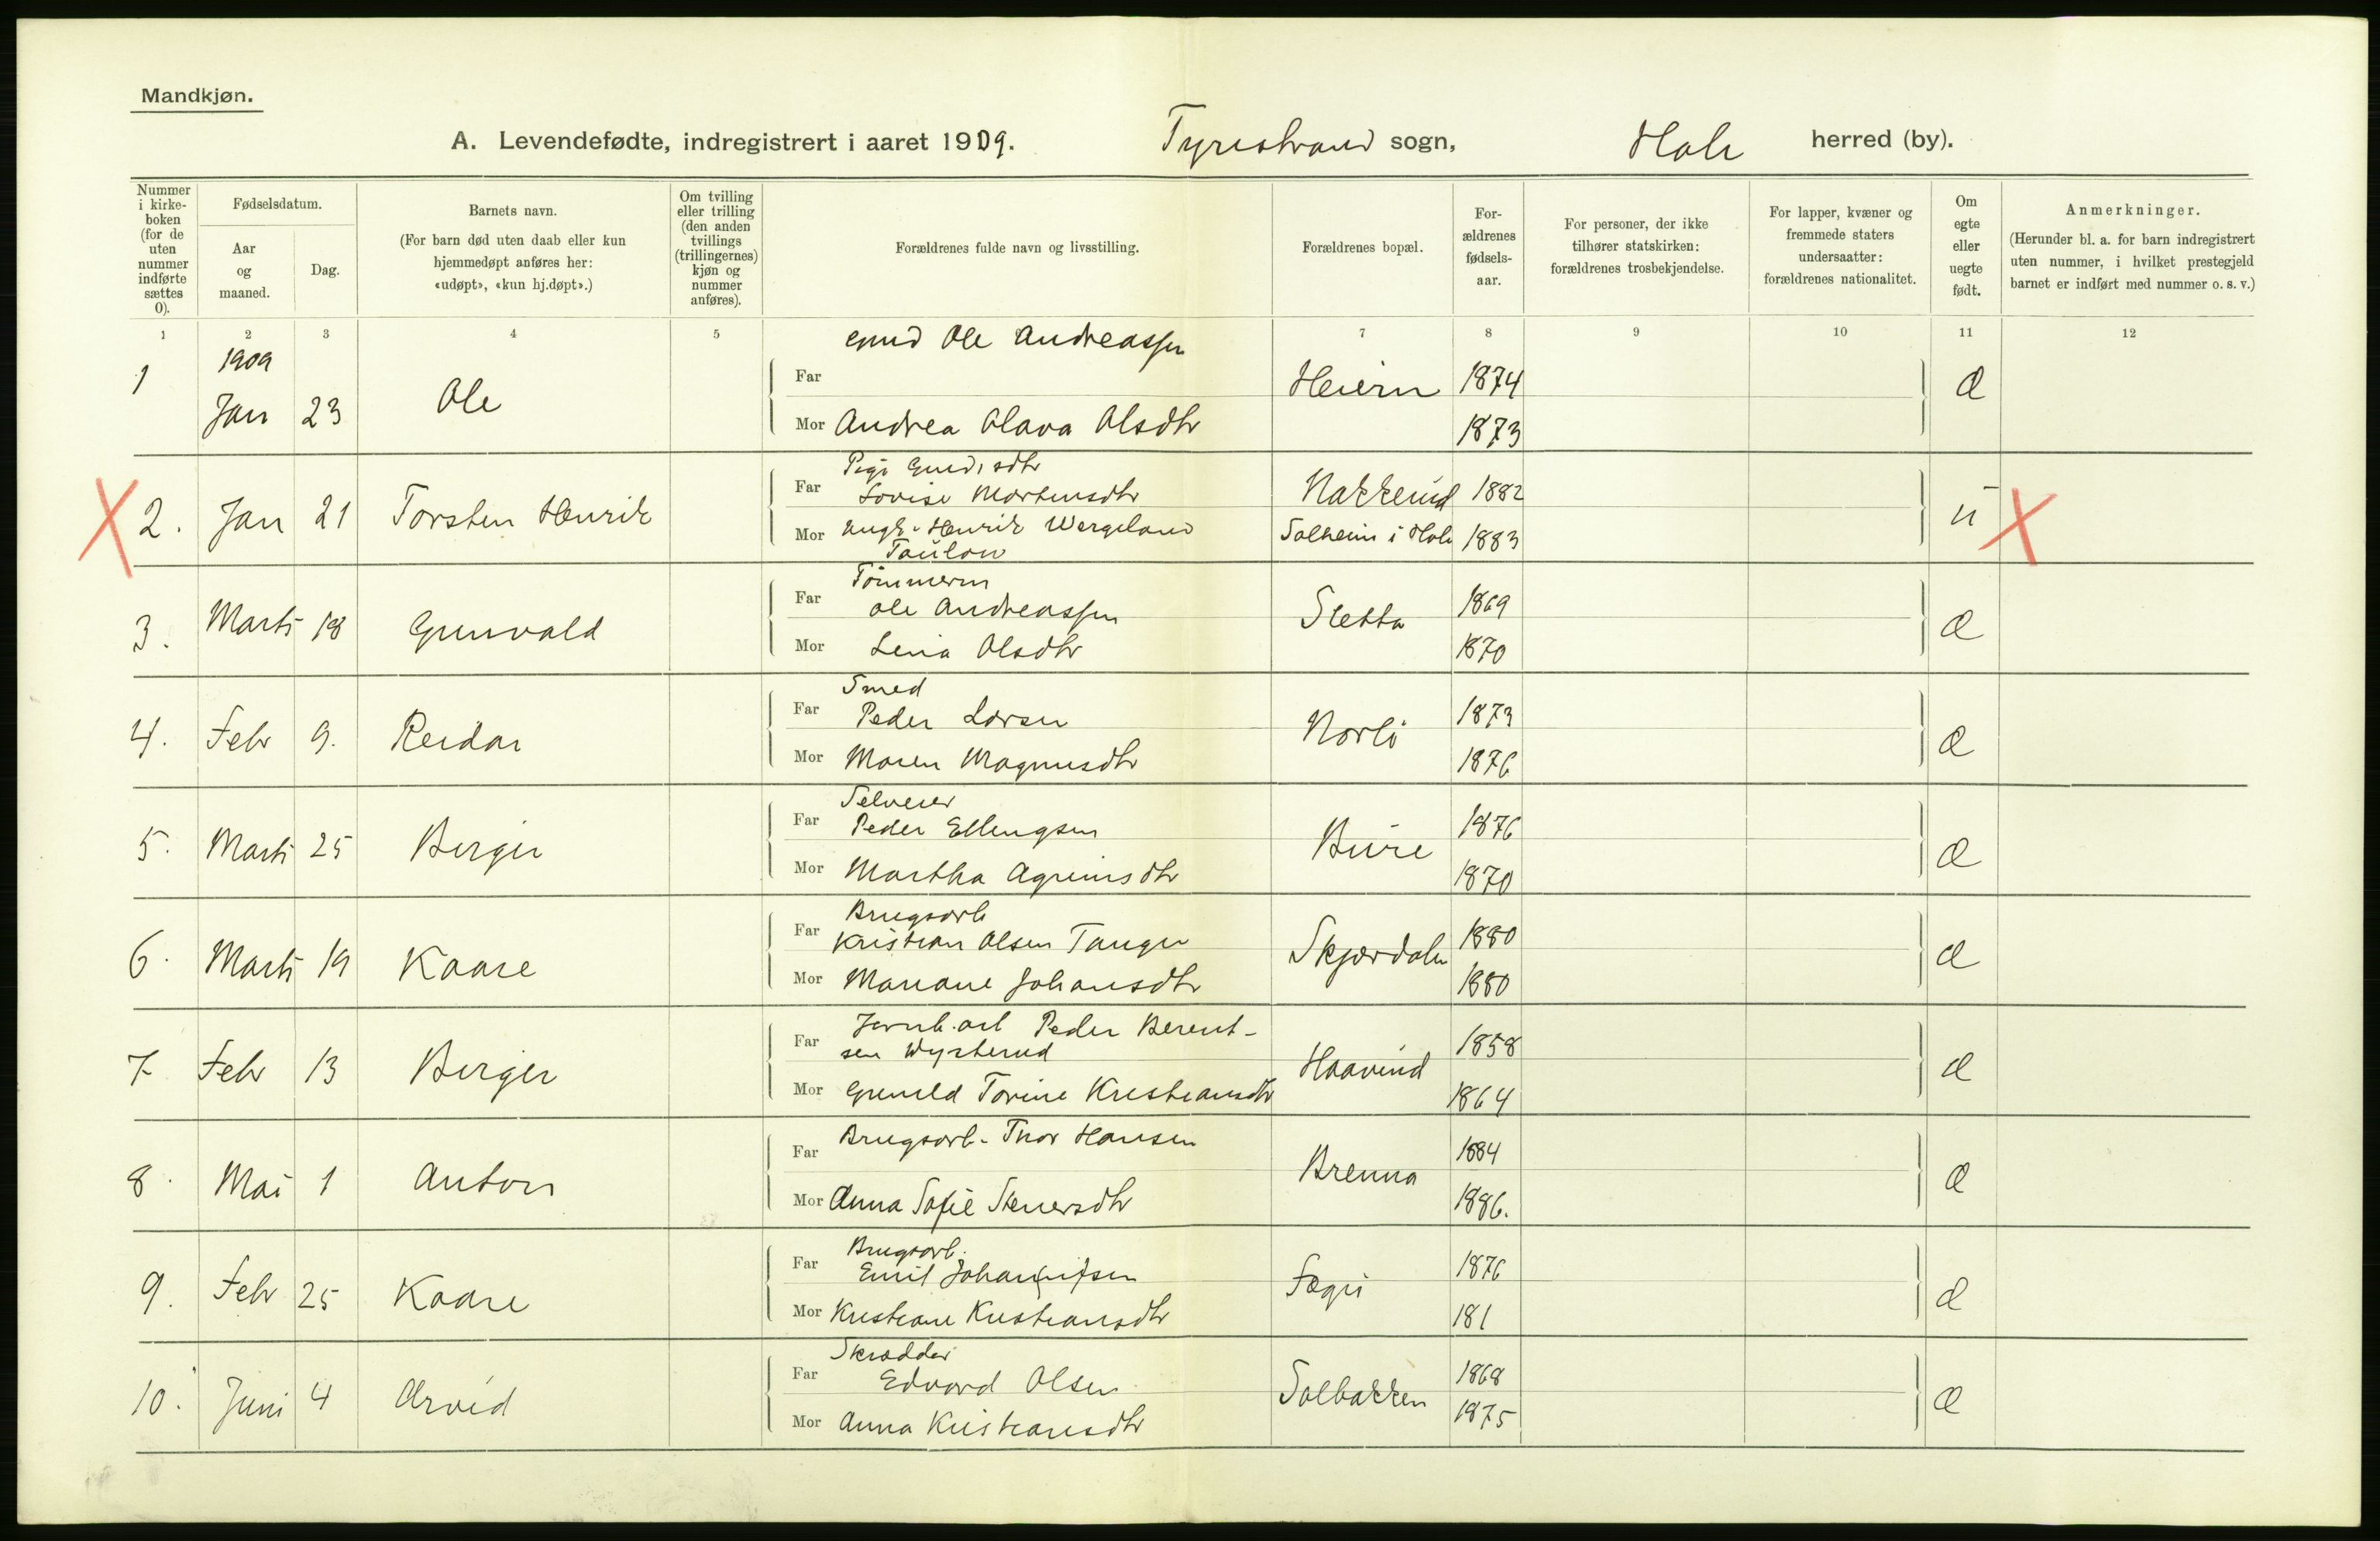 Mandkjøn.
A. Levendefødte, indregistrert i aaret 1909. Tyristrand sogn, Hole herred (by).
Nummer i kirkeboken (for de uten nummer indførte sættes 0).
Fødselsdatum.
Aar og maaned.
Dag.
Barnets navn.
(For barn død uten daab eller kun hjemmedøpt anføres her: «udøpt», «kun hj.døpt».)
Om tvilling eller trilling (den anden tvillings (trillingernes) kjøn og nummer anføres).
Forældrenes fulde navn og livsstilling.
Forældrenes bopæl.
Forældrenes fødselsaar.
For personer, der ikke tilhører statskirken: forældrenes trosbekjendelse.
For lapper, kvæner og fremmede staters undersaatter: forældrenes nationalitet.
Om egte eller uegte født.
Anmerkninger.
(Herunder bl. a. for barn indregistrert uten nummer, i hvilket prestegjeld barnet er indført med nummer o. s. v.)
1 2 3 4 5 7 8 9 10 11 12
1 1909 Jan 23 Ole
Far Ole Andreassen 1874
Mor Andrea Olava Olsdtr 1873
Æ
2. Jan 21 Torsten Henrik
Far Pige Lovise Mortensdtr Nakkerud 1882
Mor Ungk. Henrik Wergeland Taulow Solheim i Hole 1883
u
3. Marts 18 Gunvald
Far Tömmerm Ole Andreassen Sletta 1869
Mor Lina Olsdtr 1870
Æ
4. Febr 9. Reidar
Far Smed Peder Larsen Norli 1873
Mor Maren Magnusdtr 1876
Æ
5. Marts 25 Birger
Far Selveier Peder Ellingsen Bure 1876
Mor Martha 1870
Æ
6. Marts 19 Kaare
Far Brugsarb Kristian Olsen Tangen Skjærdalen 1880
Mor Mariane Johansdtr 1880
Æ
7 Febr 13 Birger
Far Jernb.arb Peder Berent-
sen Haavind 1858
Mor Gunild Torine Kristiansdtr 1864
Æ
8. Mai 1 Anton
Far Brugsarb. Thor Hansen Brenna 1884
Mor Anna Sofie Stenersdtr 1886.
Æ
9. Febr 25 Kaare
Far Brugsarb. Emil Johannessen 1876
Mor Kristiane Kristiansdtr 181
Æ
10. Juni 4 Arvid
Far Skrædder Edvard Olsen Solbakken 1868
Mor Anna Kristiansdtr 1875
Æ